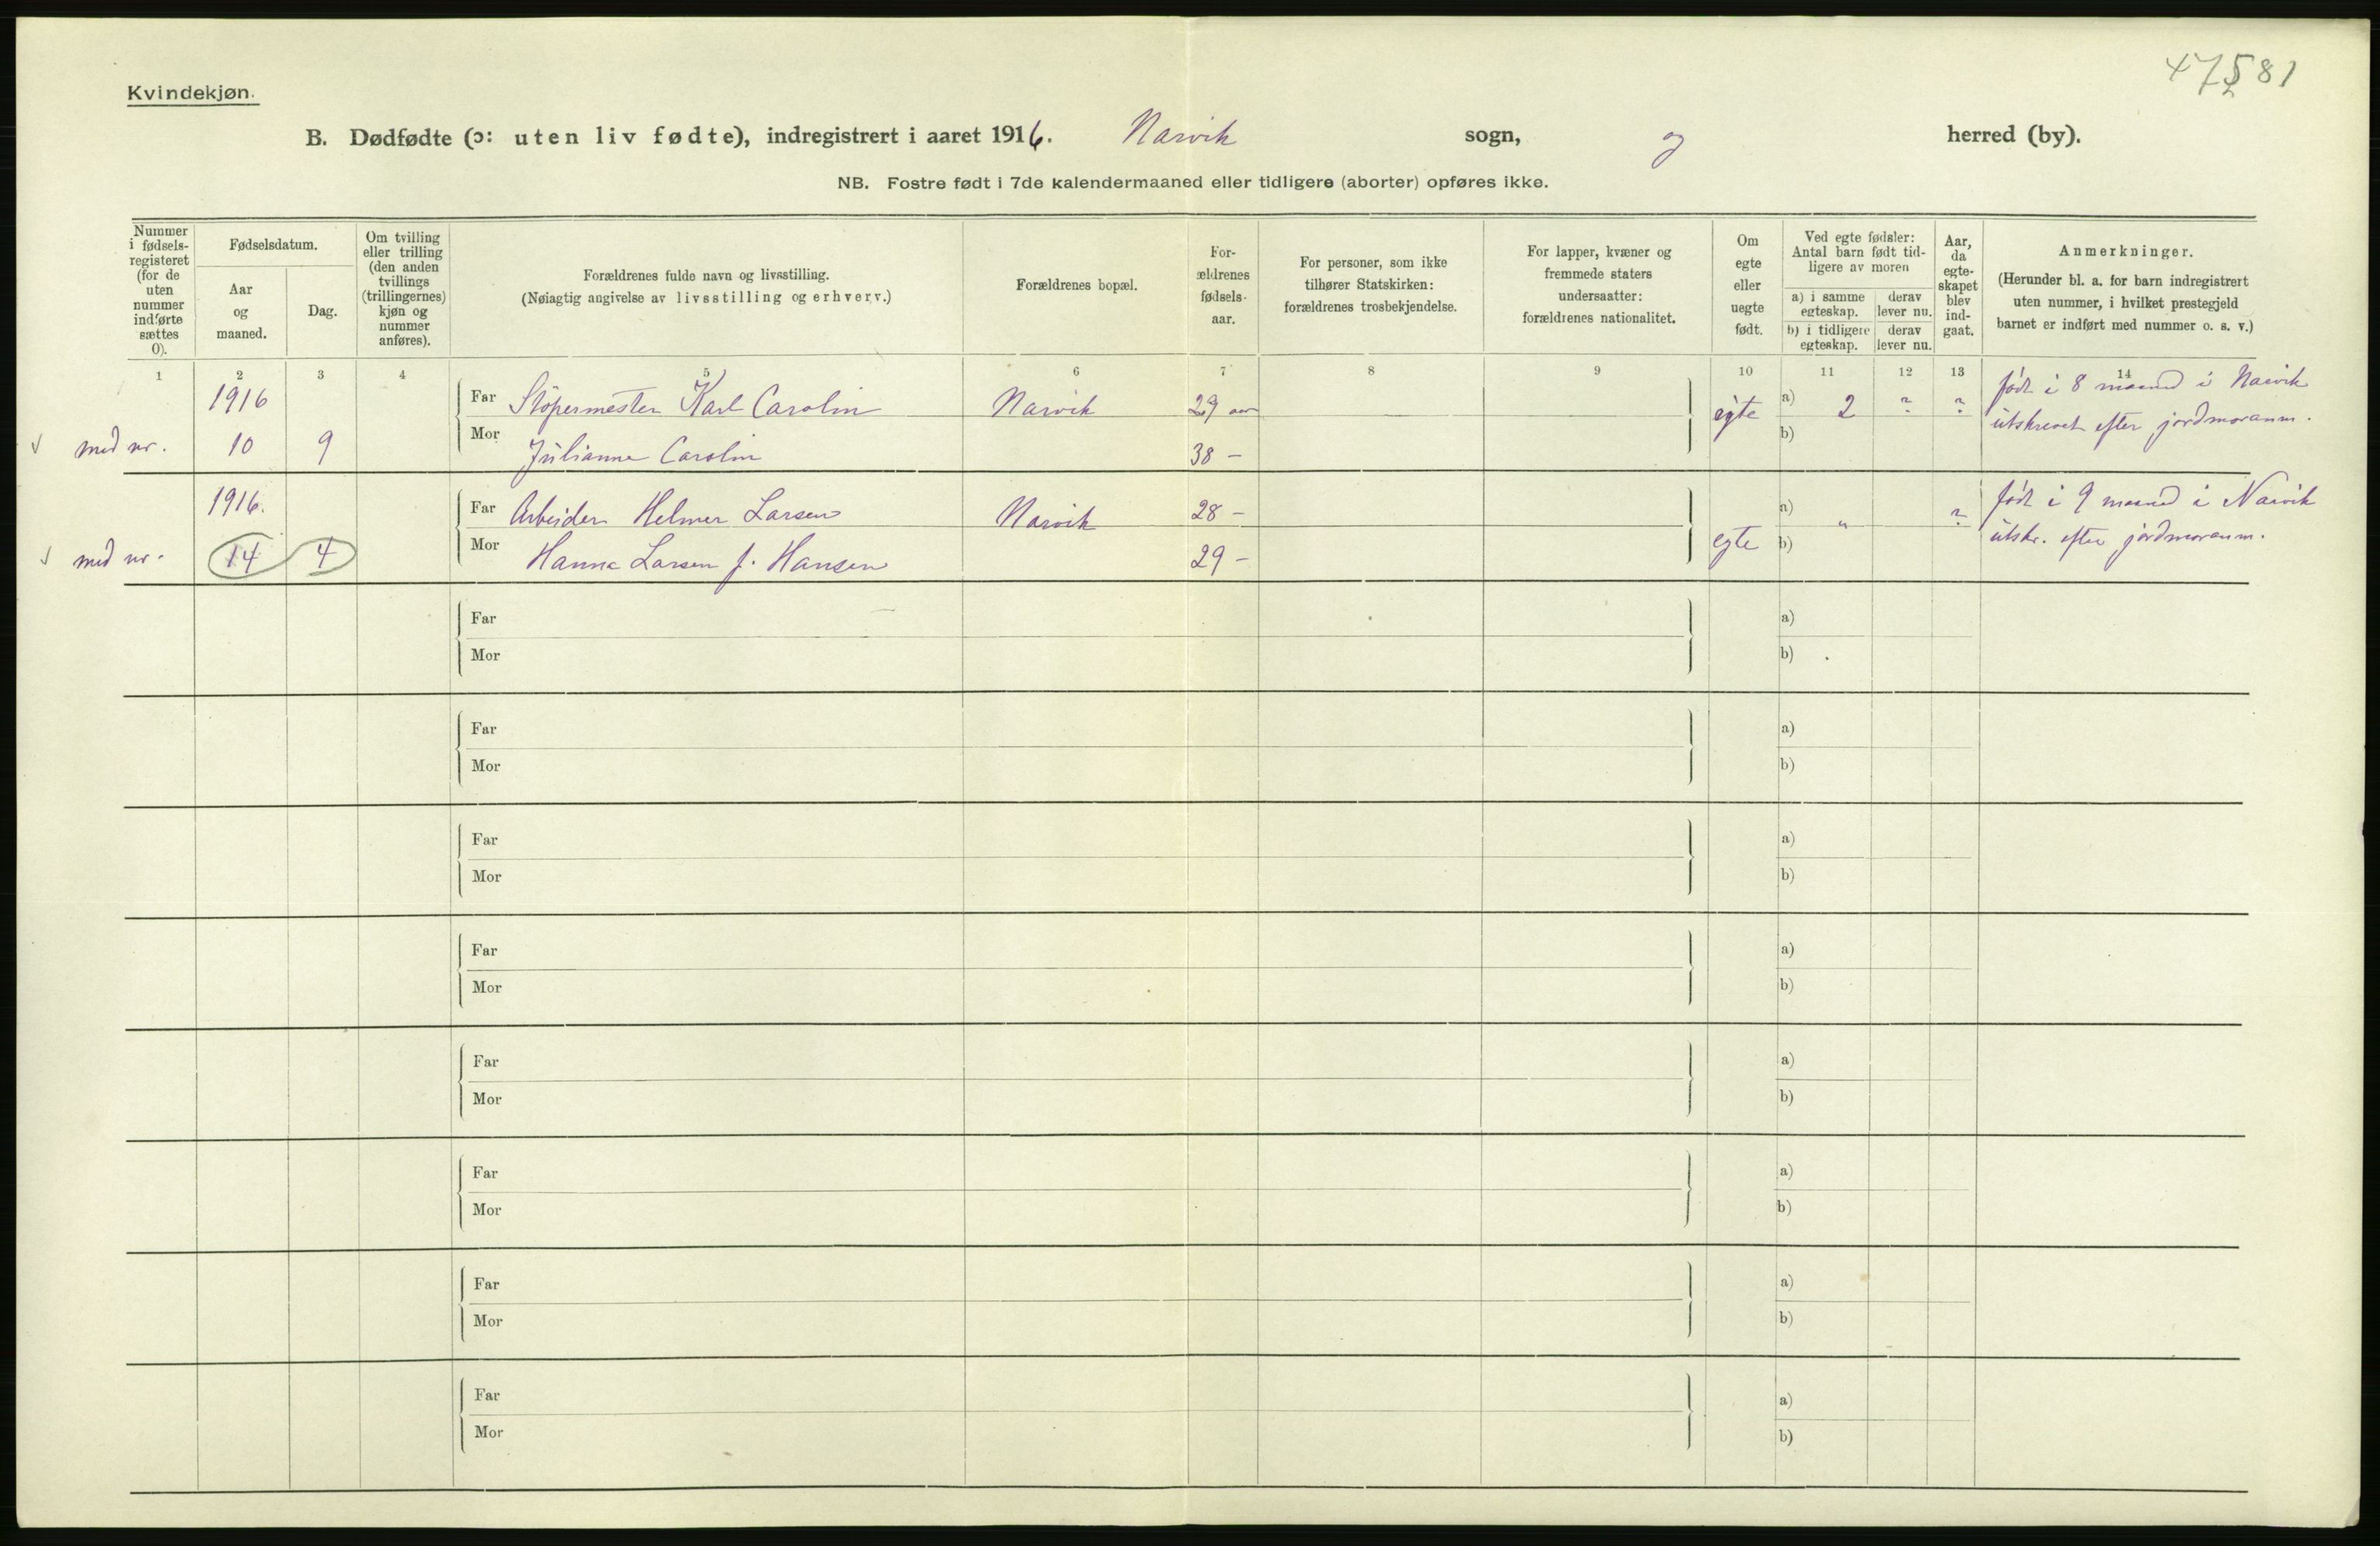 47581
Kvindekjøn.
B. Dødfødte (ɔ: uten liv fødte), indregistrert i aaret 1916. Narvik sogn, og herred (by).
NB. Fostre født i 7de kalendermaaned eller tidligere (aborter) opføres ikke.
Nummer i fødsels-registeret (for de uten nummer indførte sættes 0).
Fødselsdatum.
Aar og maaned.
Dag.
Om tvilling eller trilling (den anden tvillings (trillingernes) kjøn og nummer anføres).
Forældrenes fulde navn og livsstilling.
(Nøiagtig angivelse av livsstilling og erhverv.)
Forældrenes bopæl.
For-ældrenes fødsels-aar.
For personer, som ikke tilhører Statskirken: forældrenes trosbekjendelse.
For lapper, kvæner og fremmede staters undersaatter: forældrenes nationalitet.
Om egte eller uegte født.
Ved egte fødsler: Antal barn født tid-ligere av moren
a) i samme egteskap.
derav lever nu.
b) i tidligere egteskap.
derav lever nu.
Aar, da egte-skapet blev ind-gaat.
Anmerkninger.
(Herunder bl. a. for barn indregistrert uten nummer, i hvilket prestegjeld barnet er indført med nummer o. s. v.)
1 2 3 4 5 6 7 8 9 10 11 12 13 14
1916 Far Støpermester Karl Carolin Narvik 29 aar egte a) 2 ? ? født i 8 maaned i Narvik
utskrevet efter jordmoranm.
med nr. 10 9 Mor Julianna Carolin 38 – b)
1916. Far Arbeider Helmer Larsen Narvik 28 – a) " ? født i 9 maaned i Narvik
utskr. efter jordmoranm.
med nr. 14 4 Mor Hanna Larsen f. Hansen 29 – egte b)
Far a)
Mor b)
Far a)
Mor b)
Far a)
Mor b)
Far a)
Mor b)
Far a)
Mor b)
Far a)
Mor b)
Far a)
Mor b)
Far a)
Mor b)